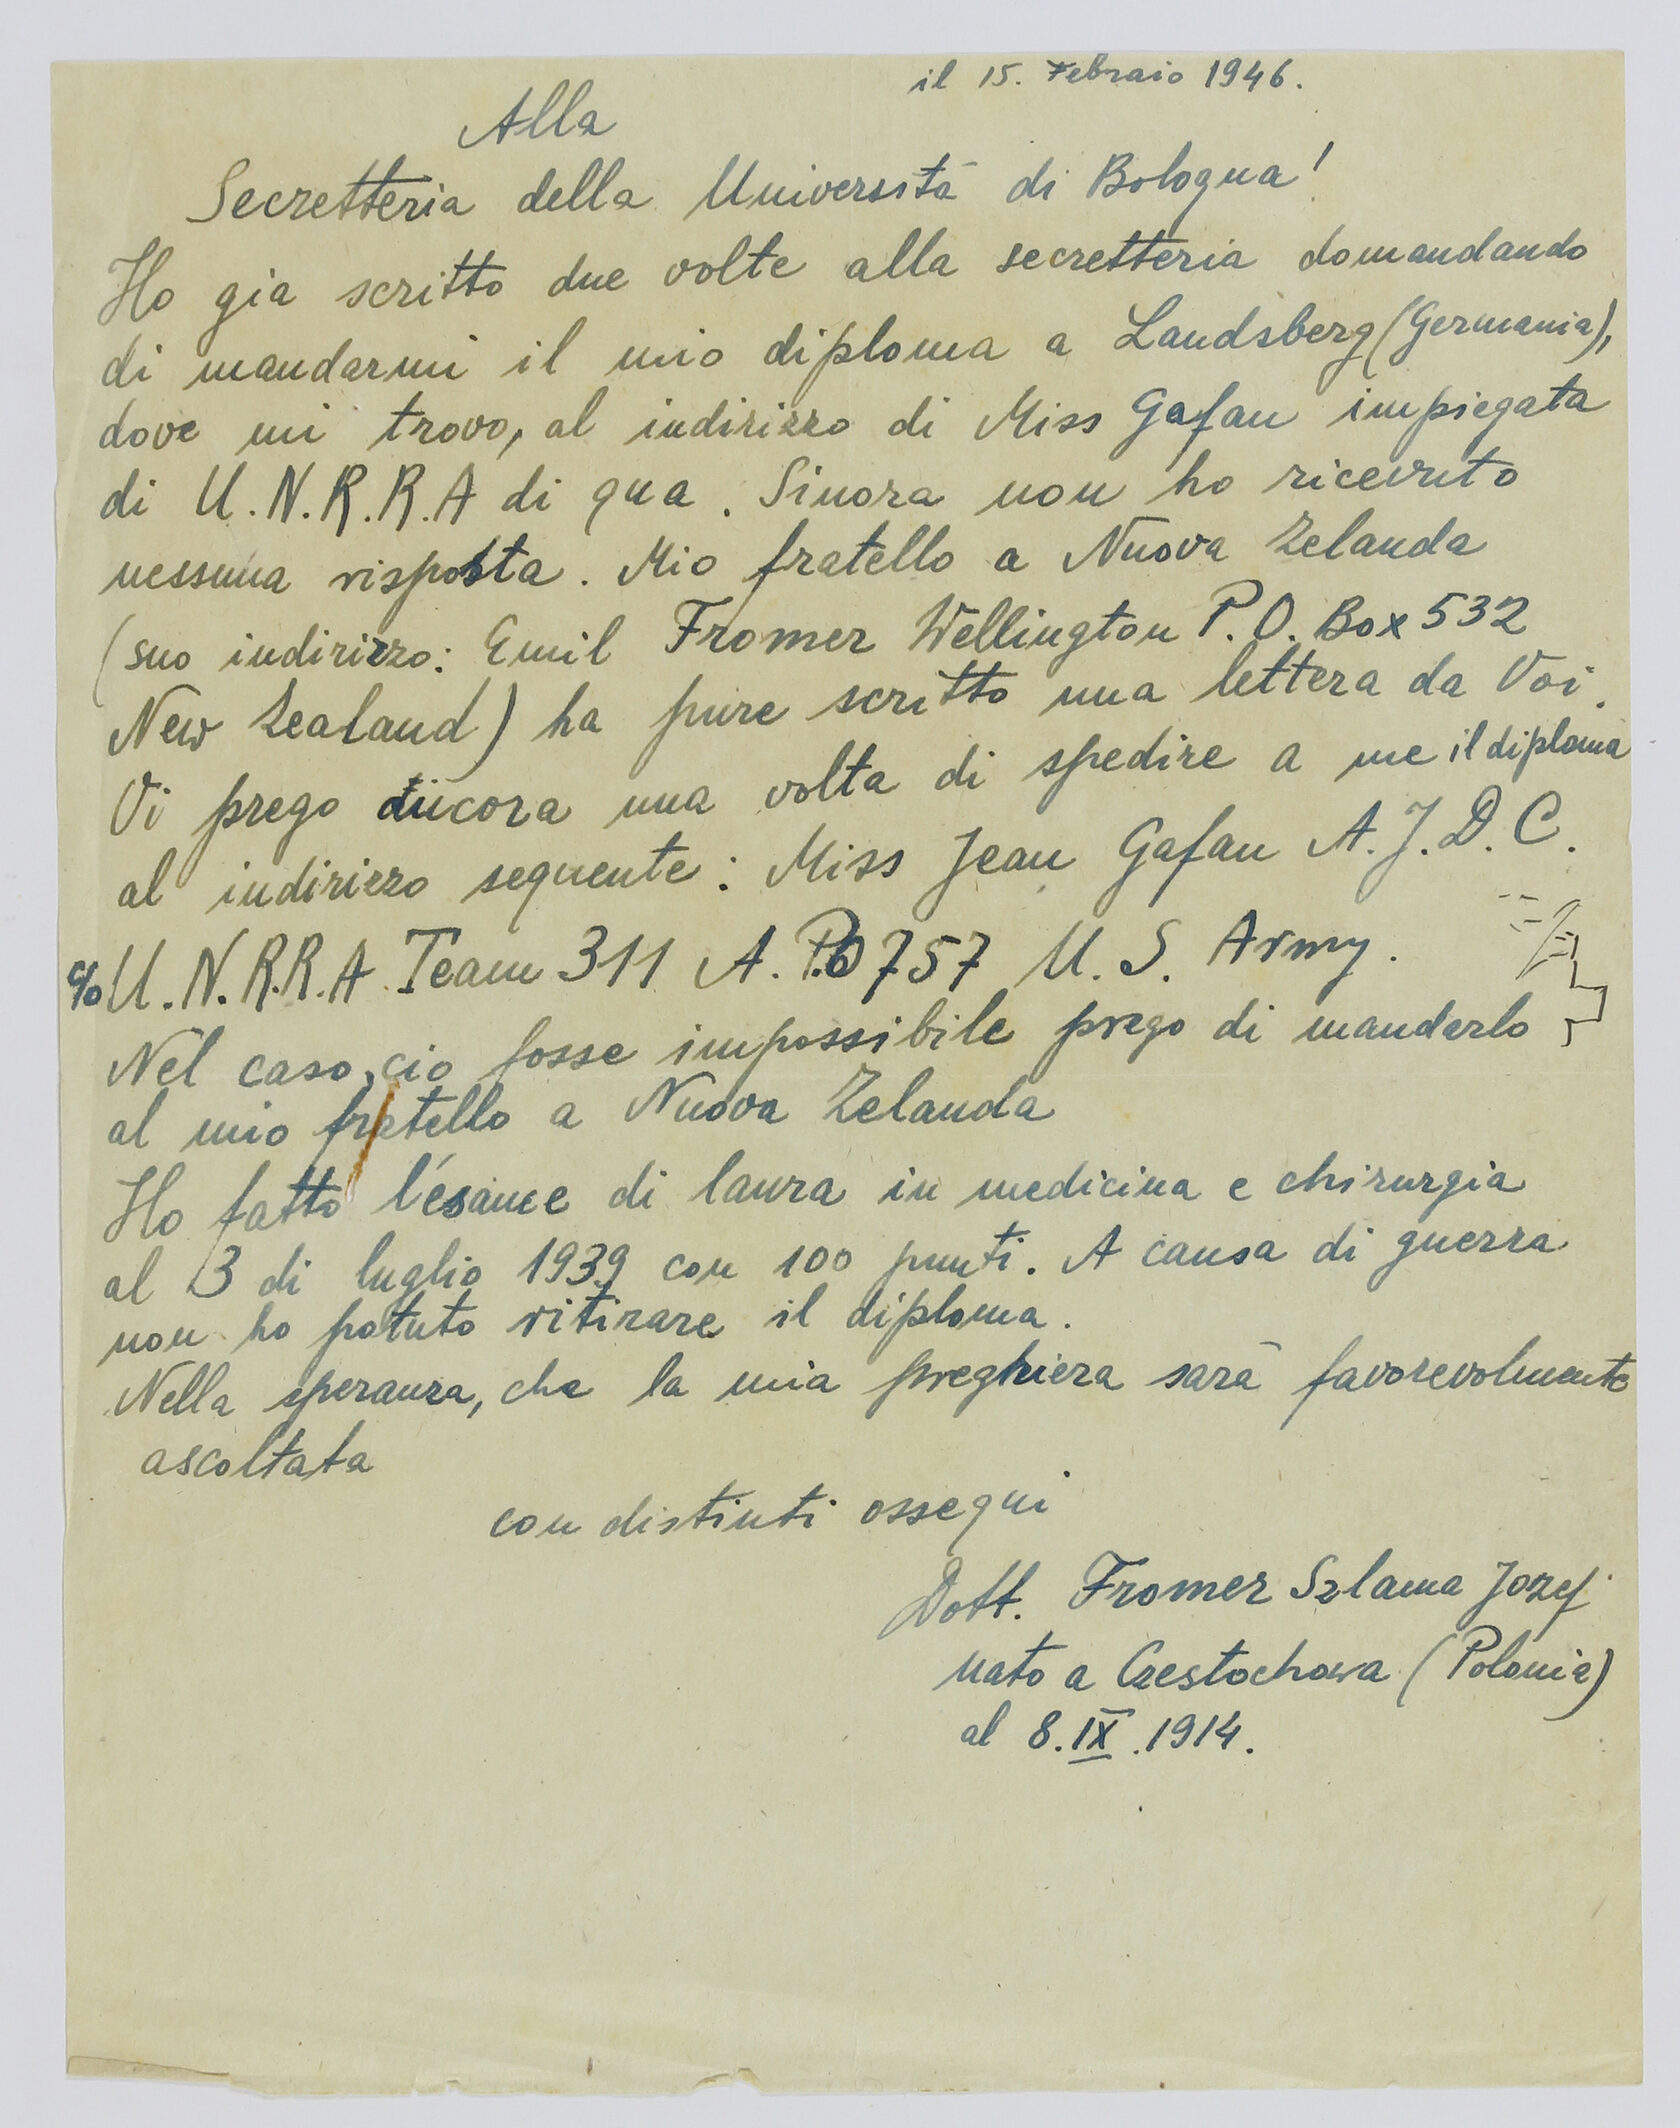 il 15. Febraio 1946.
Alla
Secretteria della Università di Bologna!
Ho gia scritto due volte alla secretteria domandando
di mandarmi il mio diploma a Landsberg (Germania),
dove mi trovo, al indirizzo di Miss Gafan impiegata
di U.N.R.R.A di qua. Sinora non ho ricevuto
nessuna risposta. Mio fratello a Nuova Zelanda
(suo indirizzo: Emil Fromer Wellington P.O. Box 532
New Zealand) ha pure scritto una lettera da Voi.
Vi prego ancora una volta di spedire a me il diploma
al indirizzo sequente: Miss Jean Gafan A.J.D.C.
c/o U.N.R.R.A Team 311 A.P.O 757 U.S. Army.
Nel caso, cio fosse impossibile prego di mandarlo
al mio fratello a Nuova Zelanda
Ho fatto l'ésame di laura in medicina e chirurgia
al 3 di luglio 1939 con 100 punti. A causa di guerra
non ho potuto ritirare il diploma.
Nella speranza, che la mia preghiera sarà favorevolmente
ascoltata
con distinti ossequi
Dott. Fromer Szlama Jozef
nato a Czestochowa (Polonia)
al 8.IX.1914.